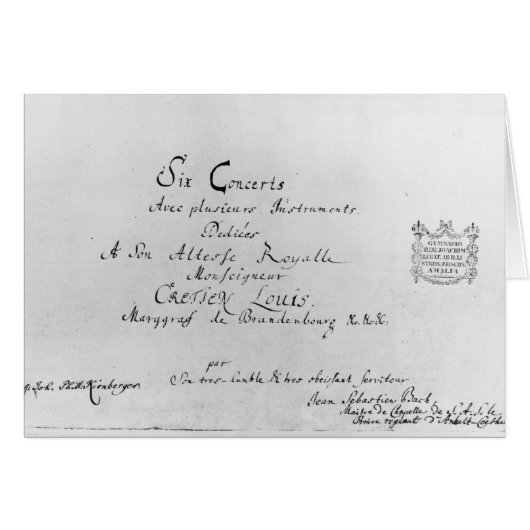 Six Concerts
Avec plusieurs Instruments.
Dediées
A Son Altesse Royalle
Monseigneur
CRETIEN LOUIS.
Marggraf de Brandenbourg &c.&c.&c:
par
Son tres-humble & tres obeissant serviteur
Jean Sebastien Bach,
Maitre de Chapelle de S.A.S. le
Prince regnant d'Anhalt-Coethen
Joh. Phil. Kirnberger.
GYMNASIO
REG. IOACHIM.
LEGAT. AB ILLU
STRISS. PRINCIPE
AMALIA